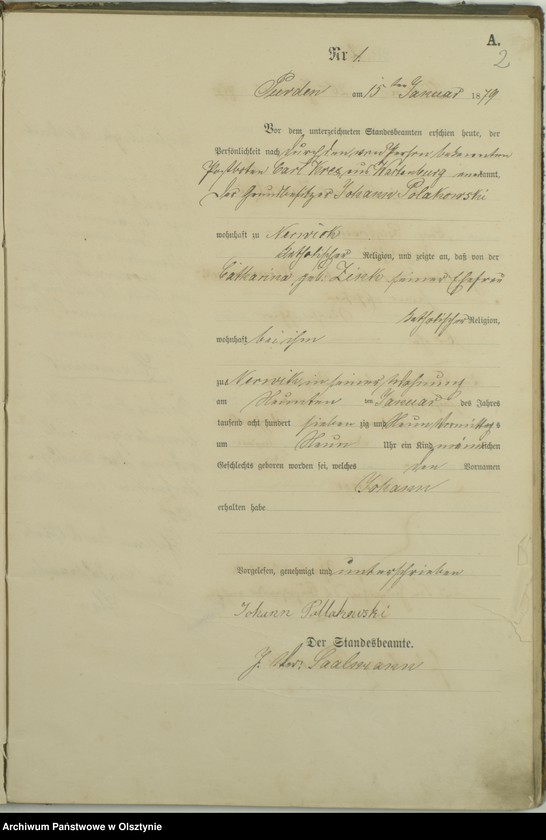 A.
2
Nr 1.
Purden am 15ten Januar 1879
Vor dem unterzeichneten Standesbeamten erschien heute, der
Persönlichkeit nach durch den, von Person bekannten
Postboten Carl aus Wartenburg anerkannt,
der Grundbesitzer Johann Polakowski
wohnhaft zu Nerwick
katholischer Religion, und zeigte an, daß von der
Catharina geb: seiner Ehefrau
katholischer Religion,
wohnhaft bei ihm
zu Nerwik, in seiner Wohnung
am Neunten ten Januar des Jahres
tausend acht hundert sieben zig und Neun, Vormittags
um Neun Uhr ein Kind männlichen
Geschlechts geboren worden sei, welches den Vornamen
Johann
erhalten habe.
Vorgelesen, genehmigt und unterschrieben
Johann Pollakowski
Der Standesbeamte.
Saalmann
Archiwum Państwowe w Olsztynie